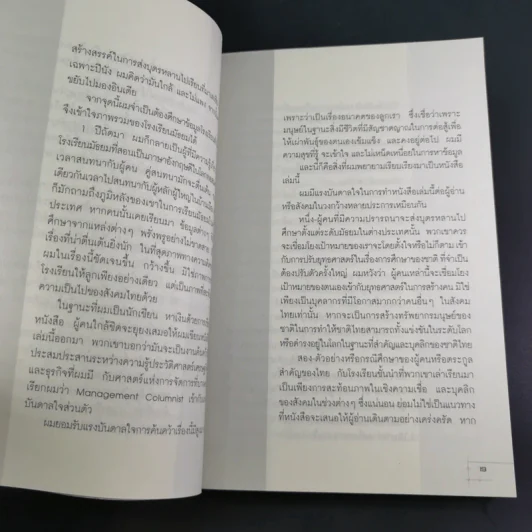 สร้างสรรค์ในการส่งบุตรหลานไปเรียนที่
เฉพาะปีนัง ผมคิดว่ามันใกล้ และไม่แพง
ขยับไปมองอินเดีย
จากจุดนี้ผมจำเป็นต้องศึกษาข้อมูลโรงเรียน
จึงเข้าใจภาพรวมของโรงเรียนมัธยมได้
1 ปีถัดมา ผมก็กลายเป็นผู้ที่มีความรู้
โรงเรียนมัธยมที่สอนเป็นภาษาอังกฤษดี
เวลาสนทนากับผู้คน คู่สนทนามักจะตื่นเต้น
เดียวกันเวลาไปสนทนากับผู้หลักผู้ใหญ่ใน
ก็มักถามถึงภูมิหลังของเขาในการเรียน
ประเทศ หากคนนั้นเคยเรียนมา ข้อมูลต่างๆ
ศึกษาจากแหล่งต่างๆ พรั่งพรูอย่างไม่ขาดสาย
เรื่องที่น่าตื่นเต้นยิ่งนัก ในที่สุดภาพทางความคิด
ผมในเรื่องนี้ชัดเจนขึ้น กว้างขึ้น มิใช่การ
โรงเรียนให้ลูกเพียงอย่างเดียว แต่เป็นภาพ
ความเป็นไปของสังคมไทยด้วย
ในฐานะที่ผมเป็นนักเขียน หาเงินด้วยการ
หนังสือ ผู้คนใกล้ชิดจะยุยงเสมอให้ผมเขียนหนังสือ
เล่มนี้ออกมา พวกเขาบอกว่ามันจะเป็นงาน
ประสมประสานระหว่างความรู้ประวัติศาสตร์
และธุรกิจที่ผมมี กับศาสตร์แห่งการจัดการ
เรียกผมว่า Management Columnist เข้ากับ
บันดาลใจส่วนตัว
ผมยอมรับแรงบันดาลใจการค้นคว้าเรื่องนี้
เพราะว่าเป็นเรื่องอนาคตของลูกเรา ซึ่งเชื่อว่าเพราะ
มนุษย์ในฐานะสิ่งมีชีวิตที่มีสัญชาตญาณในการต่อสู้เพื่อ
ให้เผ่าพันธุ์ของตนเองเข้มแข็ง และคงอยู่ต่อไป ผมมี
ความสุขที่รู้ จะเข้าใจ และไม่เหน็ดเหนื่อยในการหาข้อมูล
และนี่ก็คือสิ่งที่ผมพยายามเรียบเรียงมาเป็นหนังสือ
เล่มนี้
ผมมีแรงบันดาลใจในการทำหนังสือเล่มนี้ต่อผู้อ่าน
หรือสังคมในวงกว้างหลายประการเหมือนกัน
หนึ่ง-ผู้คนที่มีความปรารถนาจะส่งบุตรหลานไป
ศึกษาตั้งแต่ระดับมัธยมในต่างประเทศนั้น พวกเขาควร
จะเชื่อมโยงเป้าหมายของเราจะโดยตั้งใจหรือไม่ก็ตาม เข้า
กับการปรับยุทธศาสตร์ในเรื่องการศึกษาของชาติ ที่จำเป็น
ต้องปรับตัวครั้งใหญ่ ผมหวังว่า ผู้คนเหล่านี้จะเชื่อมโยง
เป้าหมายของตนเองเข้ากับยุทธศาสตร์ในการสร้างคน มิใช่
เพียงเป็นบุคลากรที่มีโอกาสมากกว่าคนอื่นๆ ในสังคม
ไทยเท่านั้น หากจะเป็นการสร้างทรัพยากรมนุษย์ของ
ชาติในการทำให้ชาติไทยสามารถทั้งแข่งขันในระดับโลก
หรือดำรงอยู่ในโลกในฐานะที่สำคัญและบุคลิกของชาติไทย
สอง-ตัวอย่างหรือกรณีศึกษาของผู้คนหรือตระกูล
สำคัญของไทย กับโรงเรียนชั้นนำที่พวกเขาเล่าเรียนมา
เป็นเพียงการสะท้อนภาพในเชิงความเชื่อ และบุคลิก
ของสังคมในช่วงต่างๆ ซึ่งแน่นอน ย่อมไม่ใช่เป็นแนวทาง
ที่หนังสือจะเสนอให้ผู้อ่านเดินตามอย่างเคร่งครัด หาก